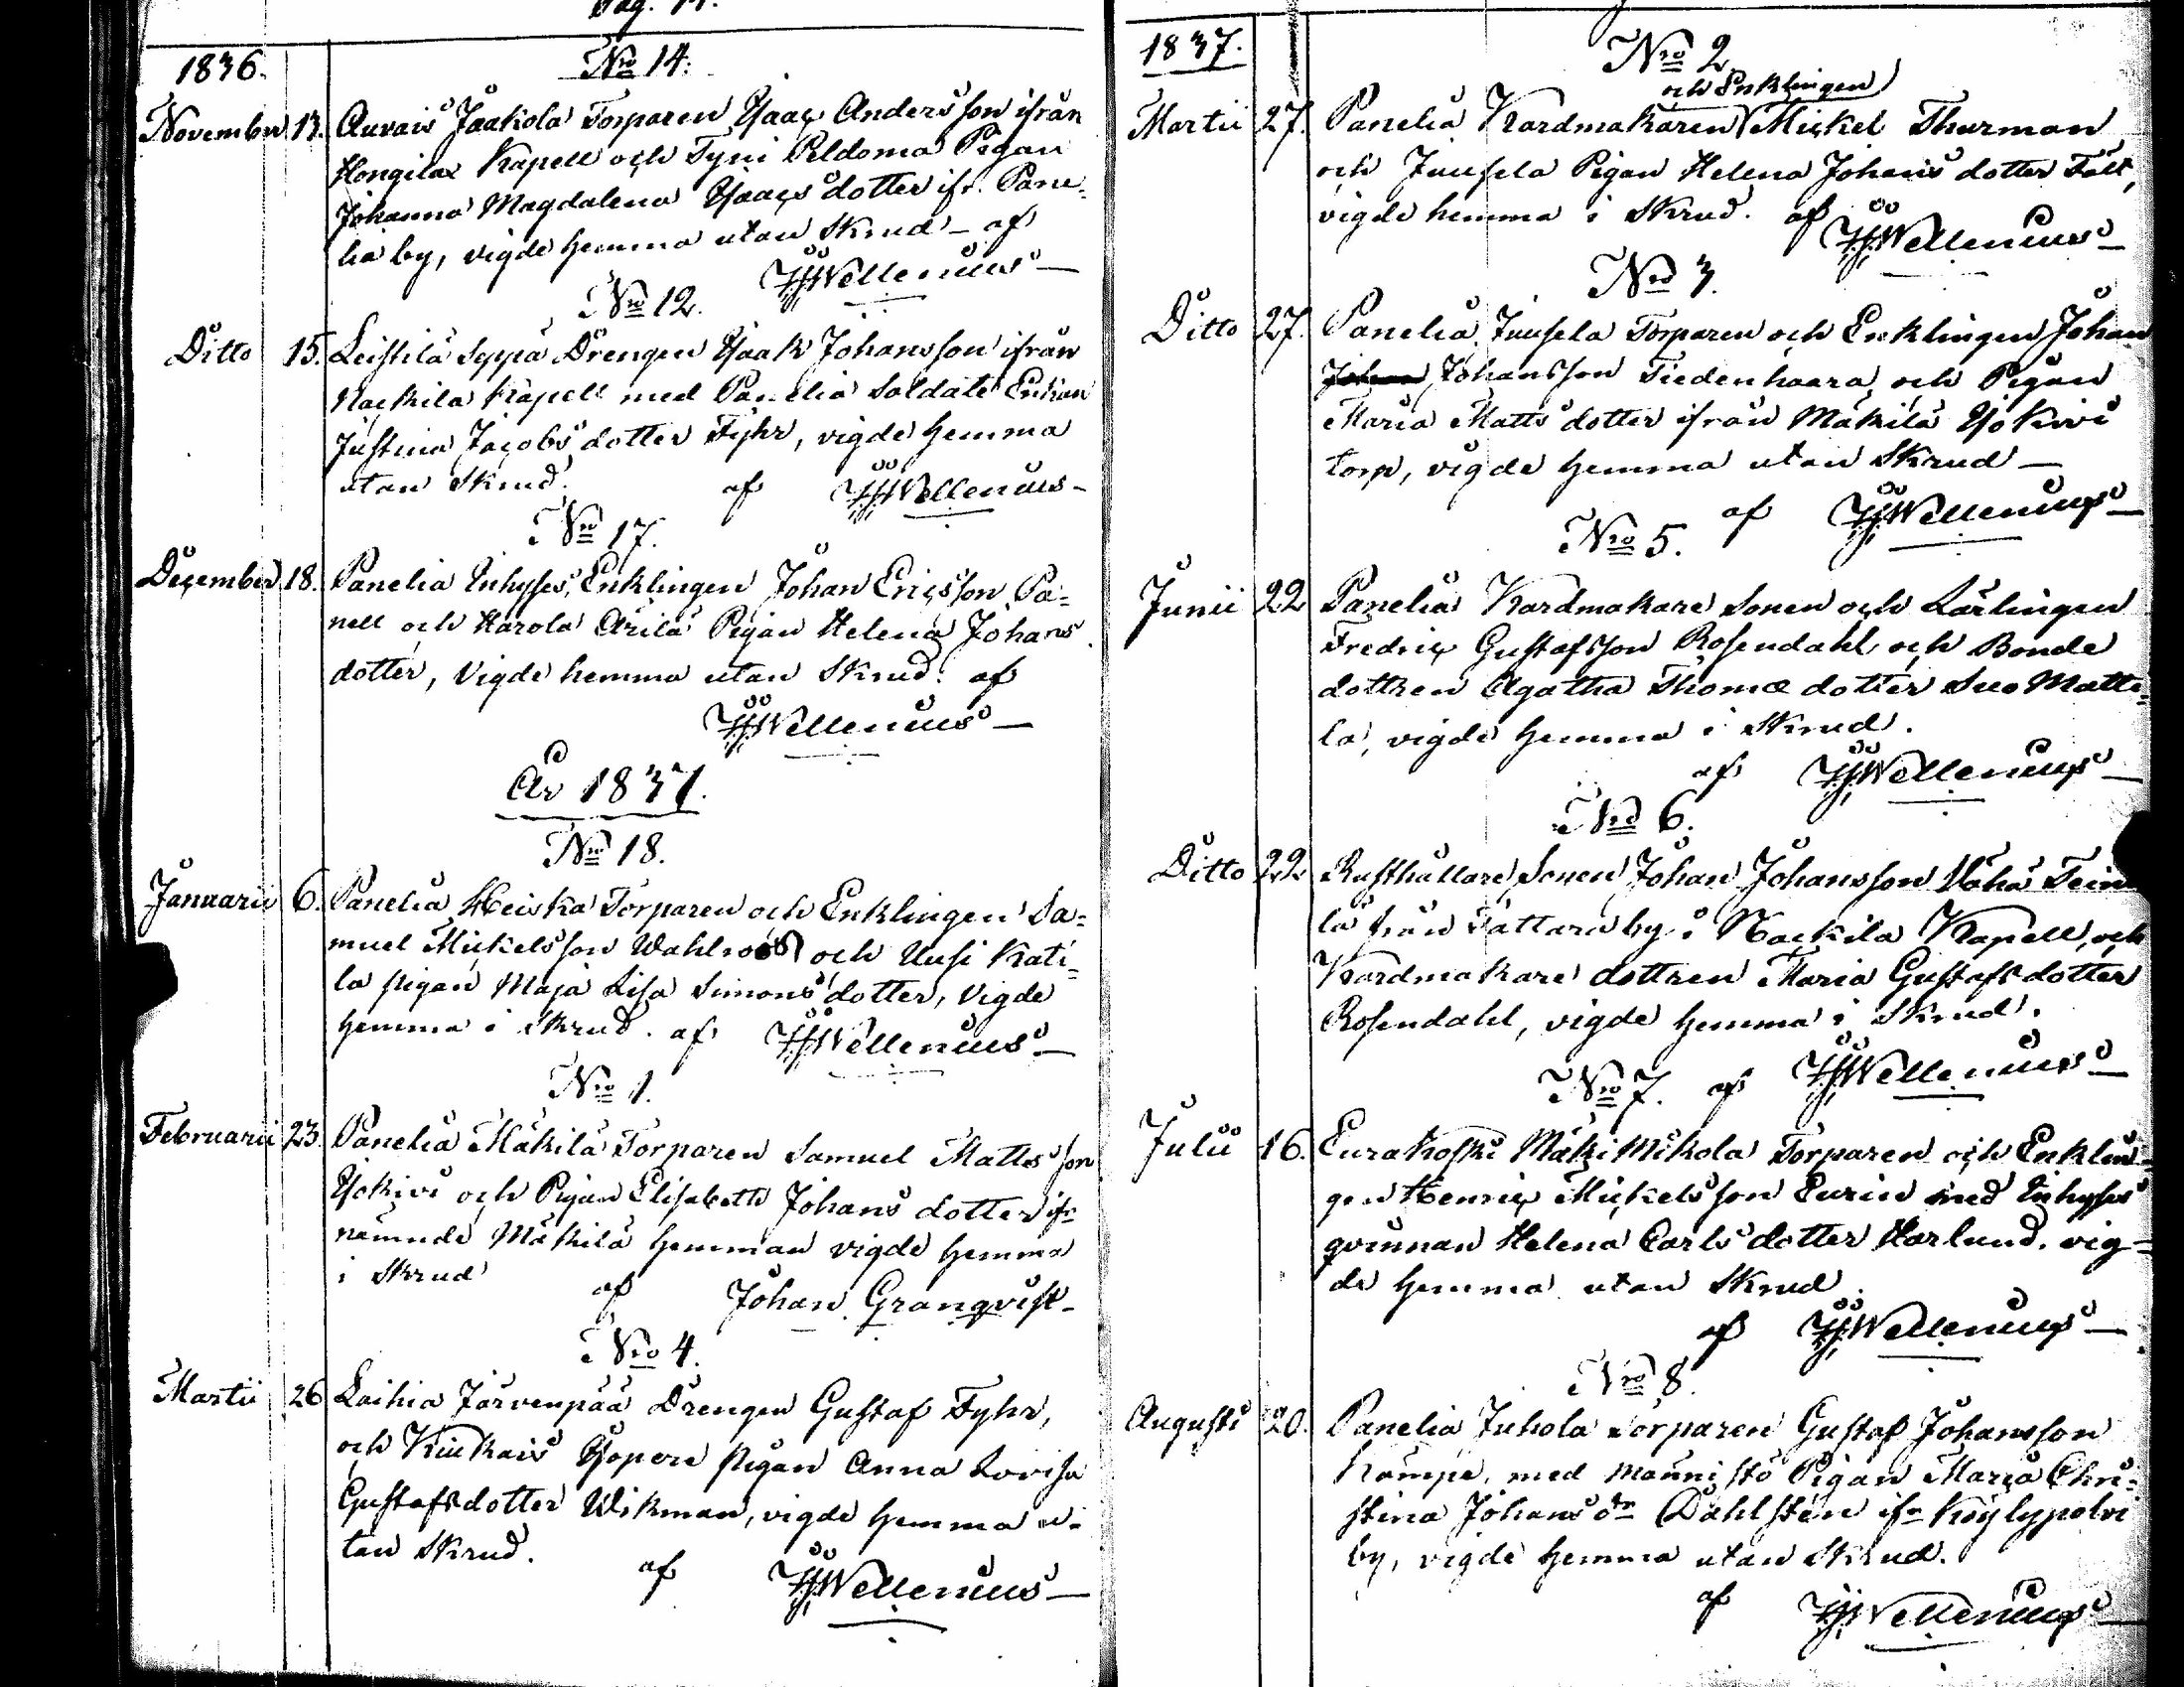 Pag. 
1836.
Nro 14.
November 13. Auvais Jaakola Torparen Isaac Andersson ifrån
Hongilax Kapell och Tyni Peldoma Pigan
Johanna Magdalena Isaacs dotter ifr. Pane-
lia by, vigde hemma utan Skrud – af
Wellenius –
Nro 12.
Ditto 15. Leistilä Seppä Drengen Isaak Johansson ifrån
Nackila Kapell med Panelia Soldats Enkan
Justina Jacobs dotter Fyhr, vigde hemma
utan Skrud. af Wellenius –
Nro 17.
December 18. Panelia Inhyses, Enklingen Johan Ericsson Pa-
nell och Harola Arilä Pigan Helena Johans
dotter, Vigde hemma utan Skrud. af
Wellenius –
År 1837.
Nro 18.
Januarii 6. Panelia Heiska Torparen och Enklingen Sa-
muel Mickelsson Wahlroos och Uusi Kati-
la pigan Maja Lisa Simons dotter, Vigde
hemma i Skrud. af Wellenius –
Nro 1.
Februarii 23. Panelia Mäkilä Torparen Samuel Matts son
Isokivi och Pigan Elisabeth Johans dotter ifr
nämnde Mäkilä hemman vigde hemma
i Skrud af Johan Granqvist –
Nro 4.
Martii 26 Laihia Järvenpää Drengen Gustaf Fyhr,
och Kiukais Isopere pigan Anna Lovisa
Gustafsdotter Wikman, vigde hemma u-
tan Skrud.
af Wellenius –
1837.
Nro 2
och Enklingen
Martii 27. Panelia Kardmakaren Mickel Thurman
och Juusela Pigan Helena Johans dotter Fält,
vigde hemma i Skrud. af Wellenius –
Nro 3.
Ditto 27. Panelia Juusela Torparen och Enklingen Johan
Johansson Tiedenhaara och Pigan
Maria Matts dotter ifrån Mäkilä Isokivi
torp, vigde hemma utan Skrud –
af Wellenius –
Nro 5.
Junii 22 Panelia Kardmakare Sonen och Lärlingen
Fredric Gustafsson Rosendahl och Bonde
dottren Agatha Thomæ dotter Suo Matti-
la, vigde hemma i Skrud.
af Wellenius –
Nro 6.
Ditto 22 Rusthållare Sonen Johan Johansson Vähä Tein
lä från Tattara by i Nackila Kapell, och
Kardmakare dottren Maria Gustafsdotter
Rosendahl, vigde hemma i Skrud.
Nro 7. af Wellenius –
Julii 16. Eurakoski Mäki Mikola Torparen och Enklin-
gen Henric Mickelsson Eurin med Inhyses
qvinnan Helena Carls dotter Harlund. vig-
de hemma utan Skrud.
af Wellenius –
Nro 8.
Augusti 20. Panelia Juhola Torparen Gustaf Johansson
Kämpe, med Männistö Pigan Maria Chri-
stina Johans dtr Dahlstén ifr Köylypolvi
by, vigde hemma utan Skrud.
af Wellenius –